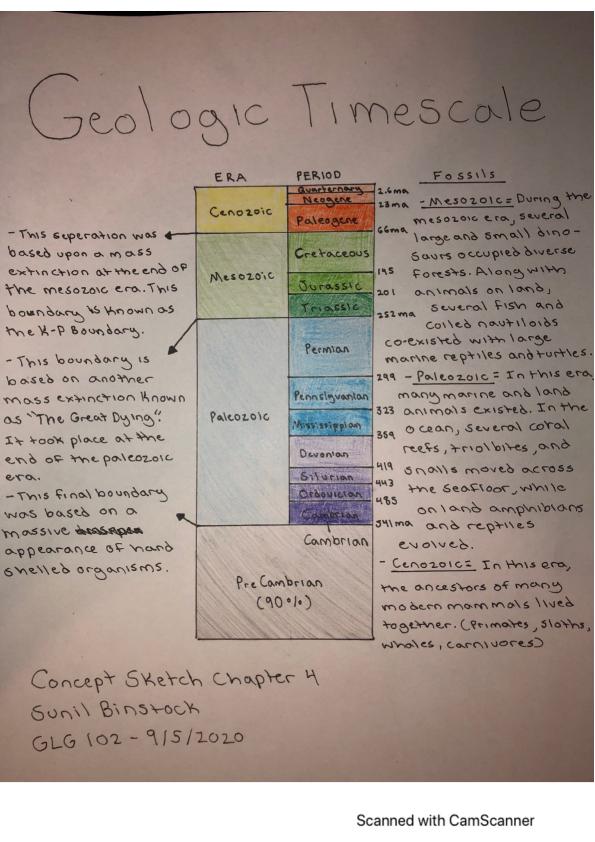 Geologic Timescale
ERA
PERIOD
Fossils
Cenozoic
Mesozoic
Paleozoic
PreCambrian
(90%)
Quarternary
Neogene
Paleogene
Cretaceous
Jurassic
Triassic
Permian
Pennslyvanian
Mississippian
Devonian
Silurian
Ordovician
Cambrian
Cambrian
2.6ma
23ma
66ma
145
201
252ma
299
323
359
419
443
485
541ma
- This seperation was
based upon a mass
extinction at the end of
the mesozoic era. This
boundary is known as
the K-P Boundary.
- This boundary is
based on another
mass extinction known
as "The Great Dying".
It took place at the
end of the paleozoic
era.
- This final boundary
was based on a
massive
appearance of hard
shelled organisms.
- Mesozoic= During the
mesozoic era, several
large and small dino-
saurs occupied diverse
forests. Along with
animals on land,
several fish and
coiled nautiloids
co-existed with large
marine reptiles and turtles.
- Paleozoic= In this era,
many marine and land
animals existed. In the
ocean, several coral
reefs, trilobites, and
snails moved across
the seafloor, while
on land amphibians
and reptiles
evolved.
- Cenozoic= In this era,
the ancestors of many
modern mammals lived
together. (Primates, sloths,
whales, carnivores)
Concept Sketch Chapter 4
Sunil Binstock
GLG 102 - 9/5/2020
Scanned with CamScanner